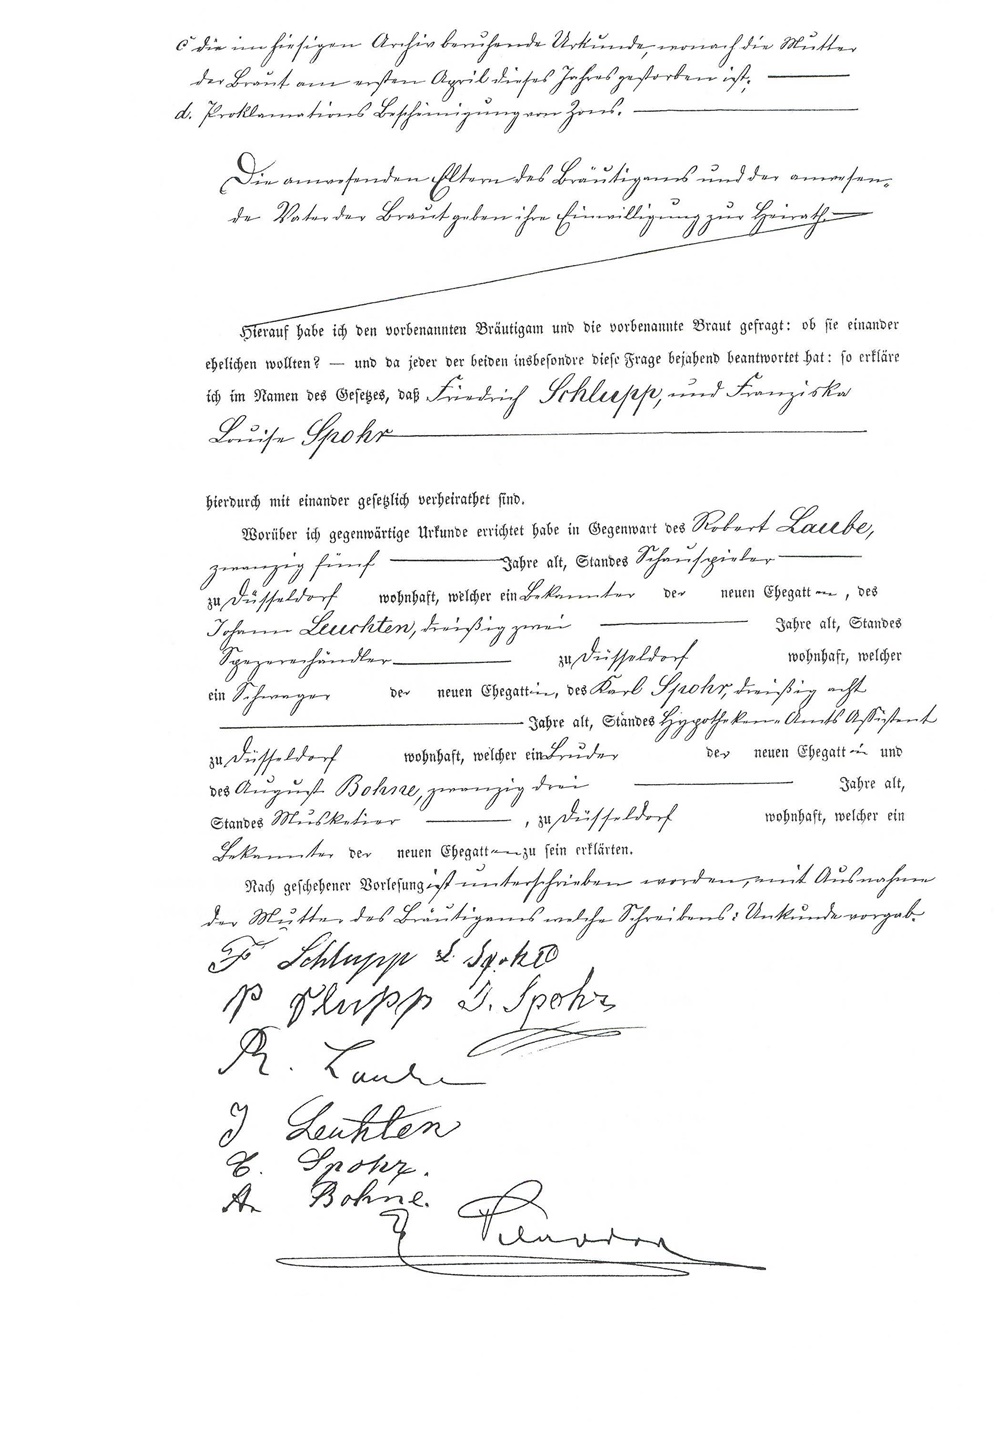 c die im hiesigen Archiv beruhende Urkunde, wonach die Mutter
der Braut am ersten April dieses Jahres gestorben ist.
d. Proklamations Bescheinigung von Zons.
Die anwesenden Eltern des Bräutigams und der anwesen-
de Vater der Braut geben ihre Einwilligung zur Heirath.
Hierauf habe ich den vorbenannten Bräutigam und die vorbenannte Braut gefragt: ob sie einander
ehelichen wollten? — und da jeder der beiden insbesondre diese Frage bejahend beantwortet hat: so erkläre
ich im Namen des Gesetzes, daß Friedrich Schlupp, und Franziska
Louise Spohr
hierdurch mit einander gesetzlich verheirathet sind.
Worüber ich gegenwärtige Urkunde errichtet habe in Gegenwart des Robert Laube,
zwanzig fünf Jahre alt, Standes Schauspieler
zu Düsseldorf wohnhaft, welcher ein Bekannter der neuen Ehegatten, des
Johann Leuchten, dreißig zwei Jahre alt, Standes
Spezereihändler zu Düsseldorf wohnhaft, welcher
ein Schwager der neuen Ehegattin, des Karl Spohr, dreißig acht
Jahre alt, Standes Hypotheken-Amts Assistent
zu Düsseldorf wohnhaft, welcher ein Bruder der neuen Ehegattin und
des August Bohne, zwanzig drei Jahre alt,
Standes Musketier, zu Düsseldorf wohnhaft, welcher ein
Bekannter der neuen Ehegatten zu sein erklärten.
Nach geschehener Vorlesung ist unterschrieben worden, mit Ausnahme
der Mutter des Bräutigams welche Schreibens: Unkunde vorgab.
F Schlupp L Spohr
P Schlupp J. Spohr
R. Laube
J Leuchten
C. Spohr.
A. Bohne.